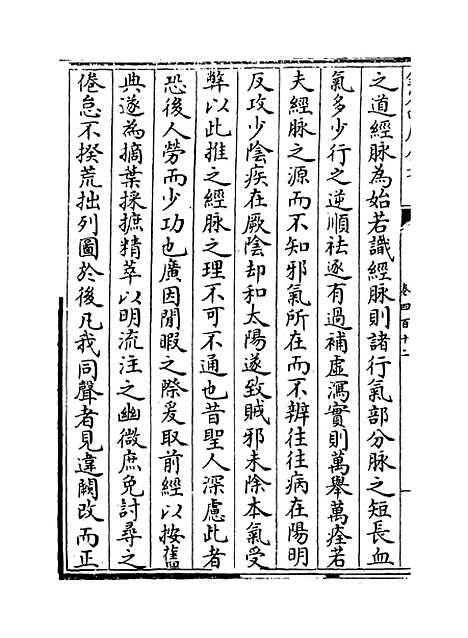 之道經脉為始若識經脉則諸行氣部分脉之短長血
氣多少行之逆順祛逐有過補虛瀉實則萬舉萬痊若
夫經脉之源而不知邪氣所在而不辨往往病在陽明
反攻少陰疾在厥陰却和太陽遂致賊邪未除本氣受
弊以此推之經脉之理不可不通也昔聖人深慮此者
恐後人勞而少功也廣因閒暇之際爰取前經以按舊
典遂為摘葉採摭精萃以明流注之幽微庶免討尋之
倦怠不揆荒拙列圖於後凡我同聲者見違闕改而正
卷四百十二